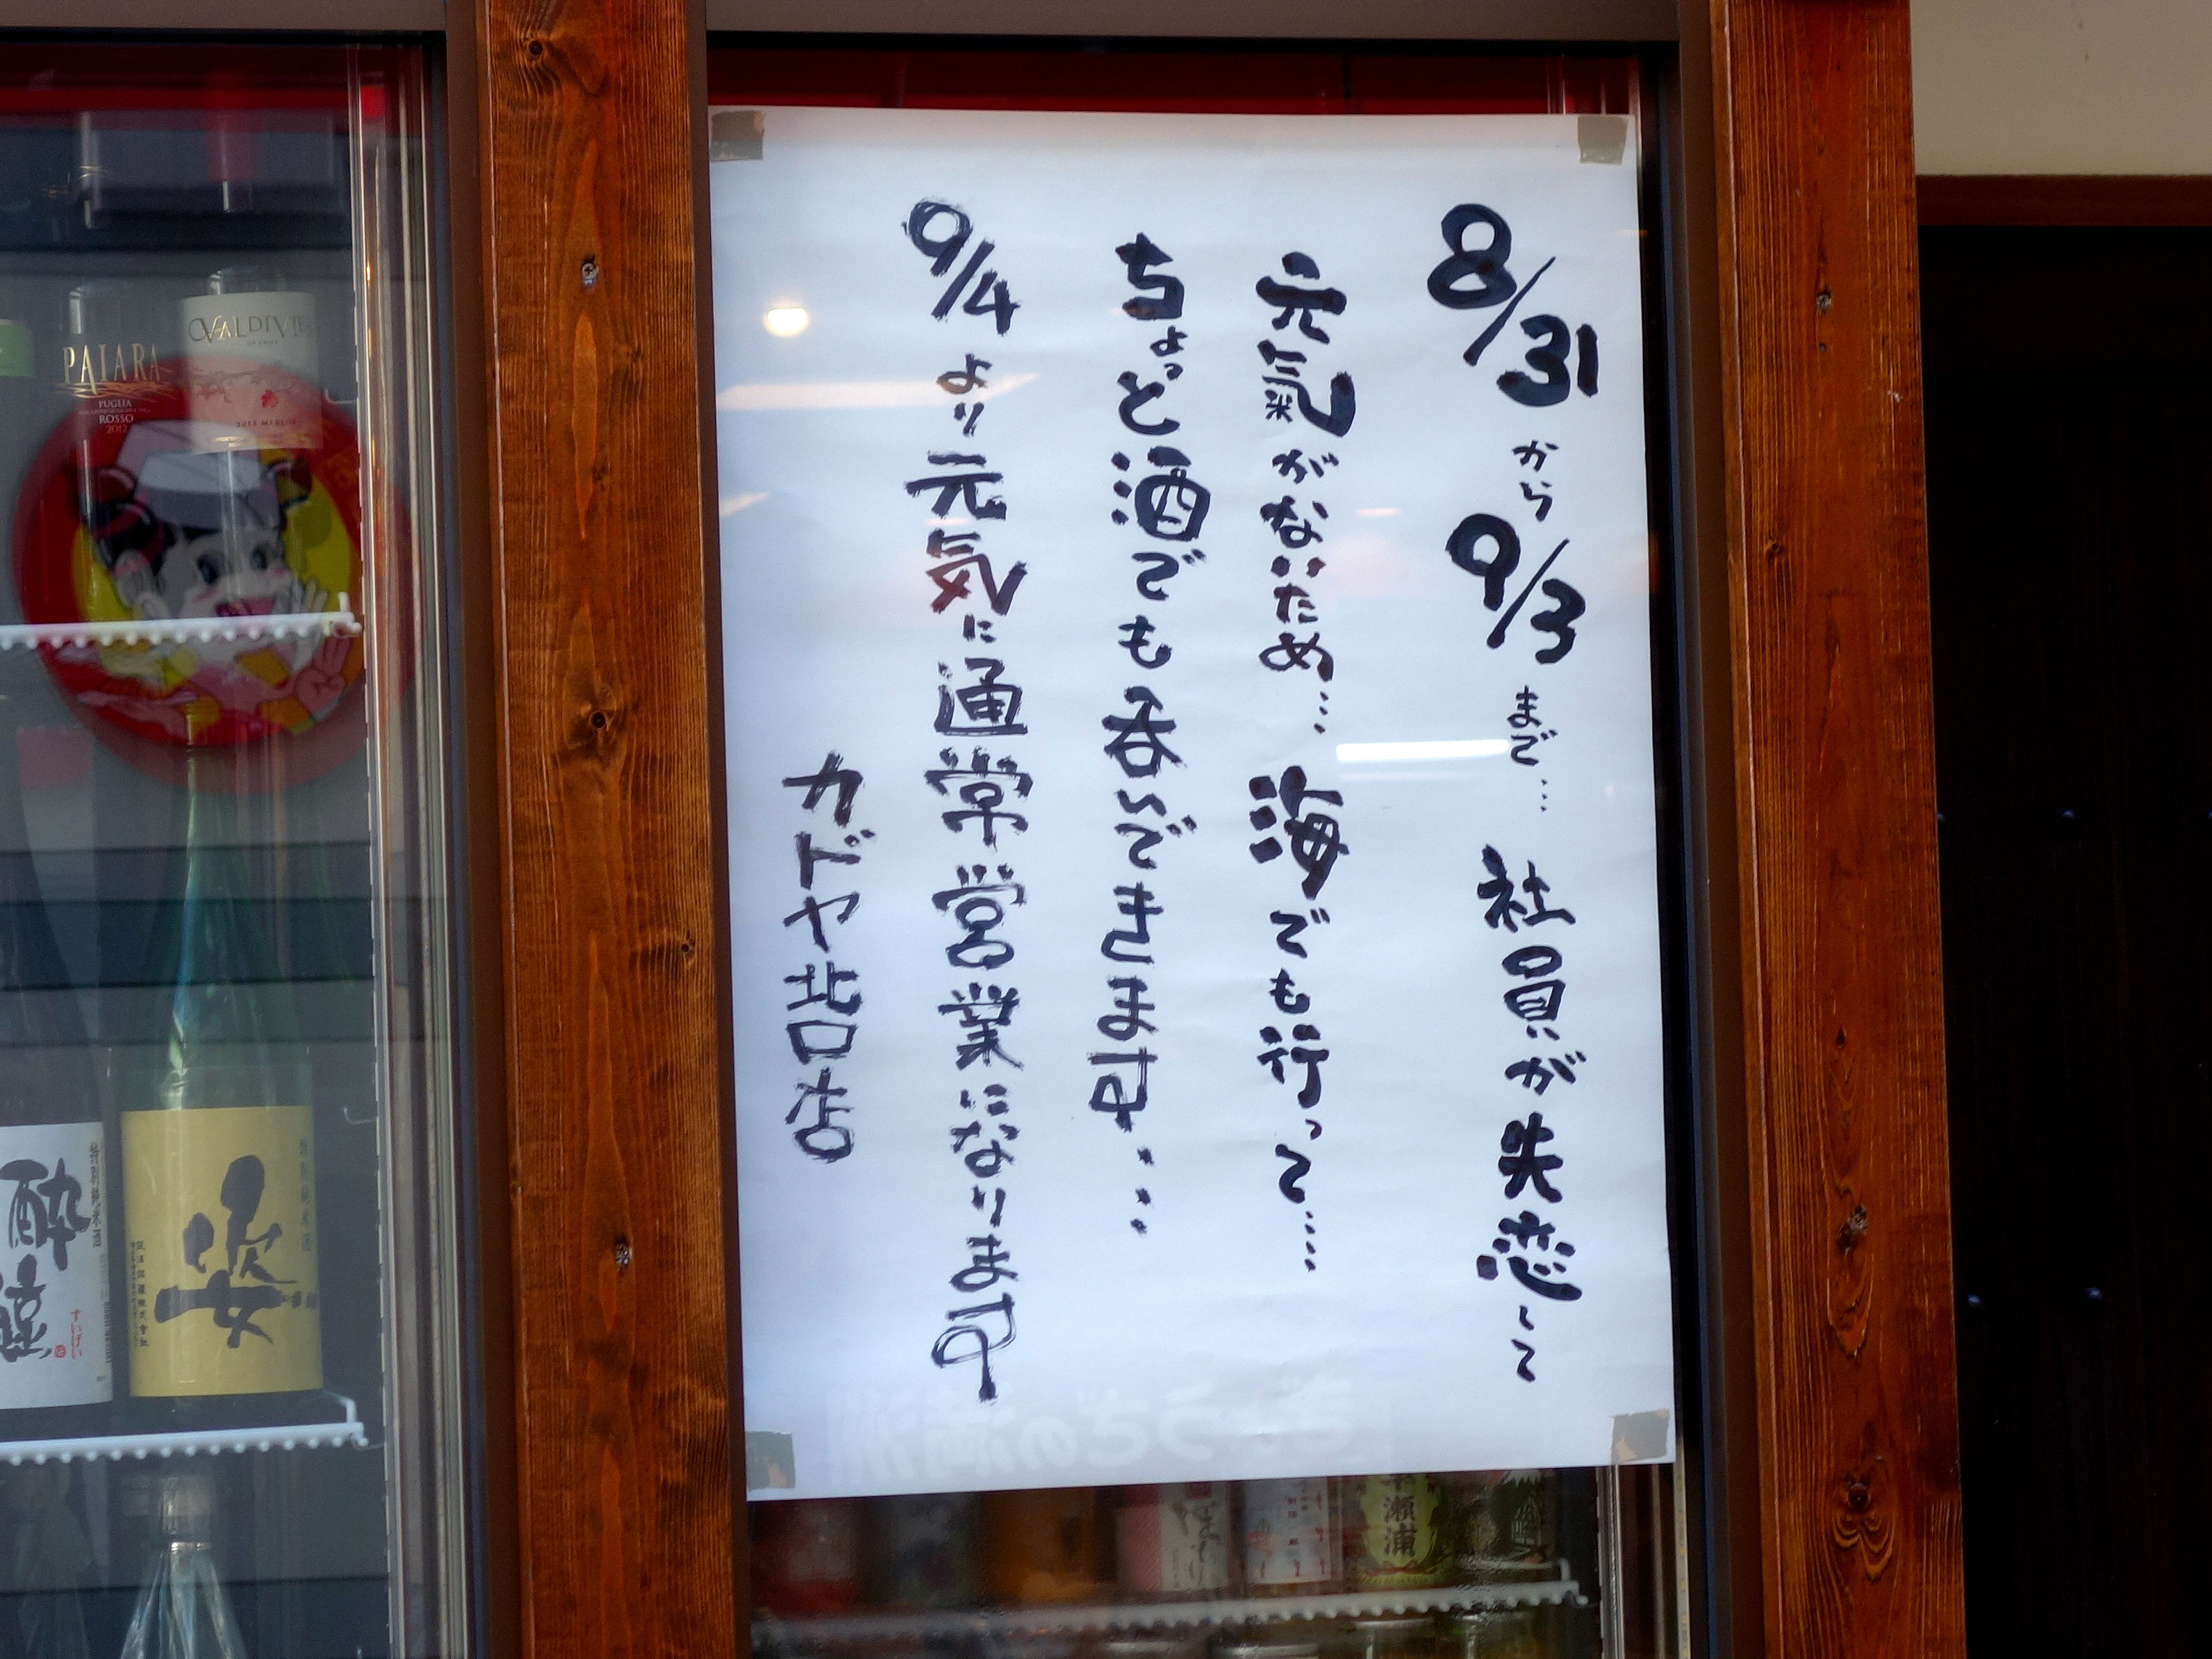 8/31から9/3まで… 社員が失恋して
元氣がないため… 海でも行って……
ちょっと酒でも呑んできます…
9/4より元気に通常営業になります
カドヤ北口店
PAIARA
PUGLIA
ROSSO
2012
VALDIVIE
2013 MERLOT
特別純米酒
酔鯨
すいげい
姿
ぎょうざの満洲
瀬浦